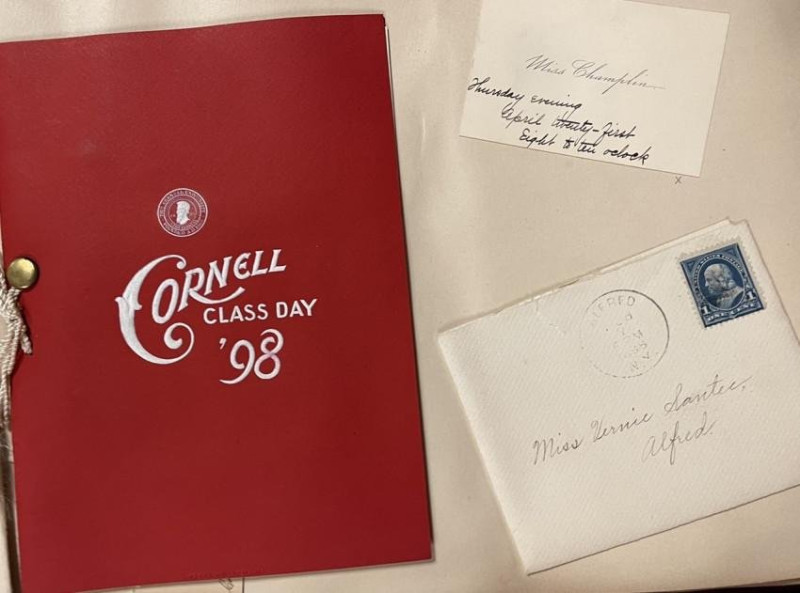 CORNELL
CLASS DAY
'98
Miss Champlin
Thursday evening
April twenty-first
Eight to ten oclock
x
ALFRED
N.Y.
1 1
ONE CENT
Miss Vernie Santee,
Alfred.